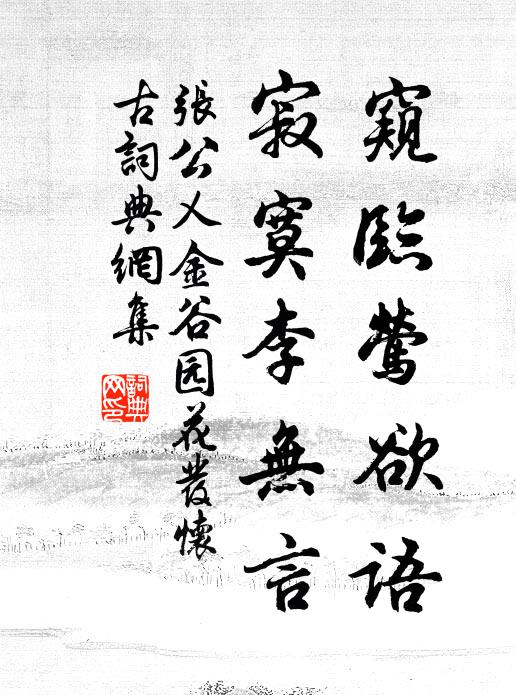 窺臨鶯欲語
寂寞李無言
張公乂金谷园花發懷
古詞典網集
詞典
网印